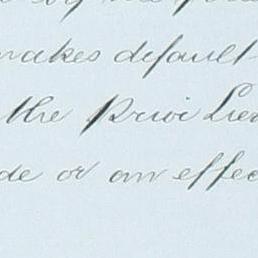 makes default
the Prior Lien
de or an effec